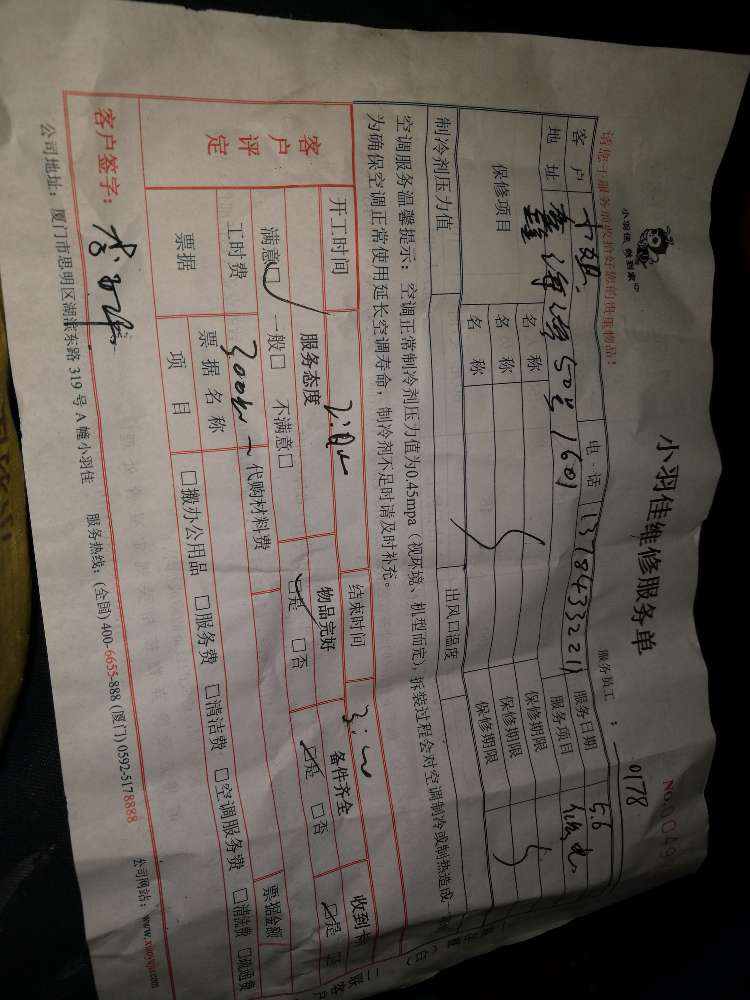 请您于服务前收拾好您的贵重物品!
小羽佳 找到家
小羽佳维修服务单
服务员工:0178
NO.0049
客户 电·话 13784332211 服务日期 5.6
地址 50号1601 服务项目
保修项目 名称 保修期限
名称 保修期限
名称
制冷剂压力值 出风口温度
空调服务温馨提示:空调正常制冷剂压力值为0.45mpa(视环境、机型而定),拆装过程会对空调制冷或制热造成
为确保空调正常使用延长空调寿命,制冷剂不足时请及时补充。
开工时间 结束时间
客户评定 服务态度 物品完好 备件齐全 收到
满意□ 一般□ 不满意□ □是 □否 □是 □否 □是
工时费 300 代购材料费 票据金额
票据 票据名称
项目 □搬办公用品 □服务费 □清洁费 □空调服务费 □清洗费 □疏通费
客户签字:
公司地址:厦门市思明区湖滨东路319号A幢小羽佳 服务热线:(全国)400-6655-888(厦门)0592-5178888 公司网站:www.xiaoyujia.com
二联客户(白)